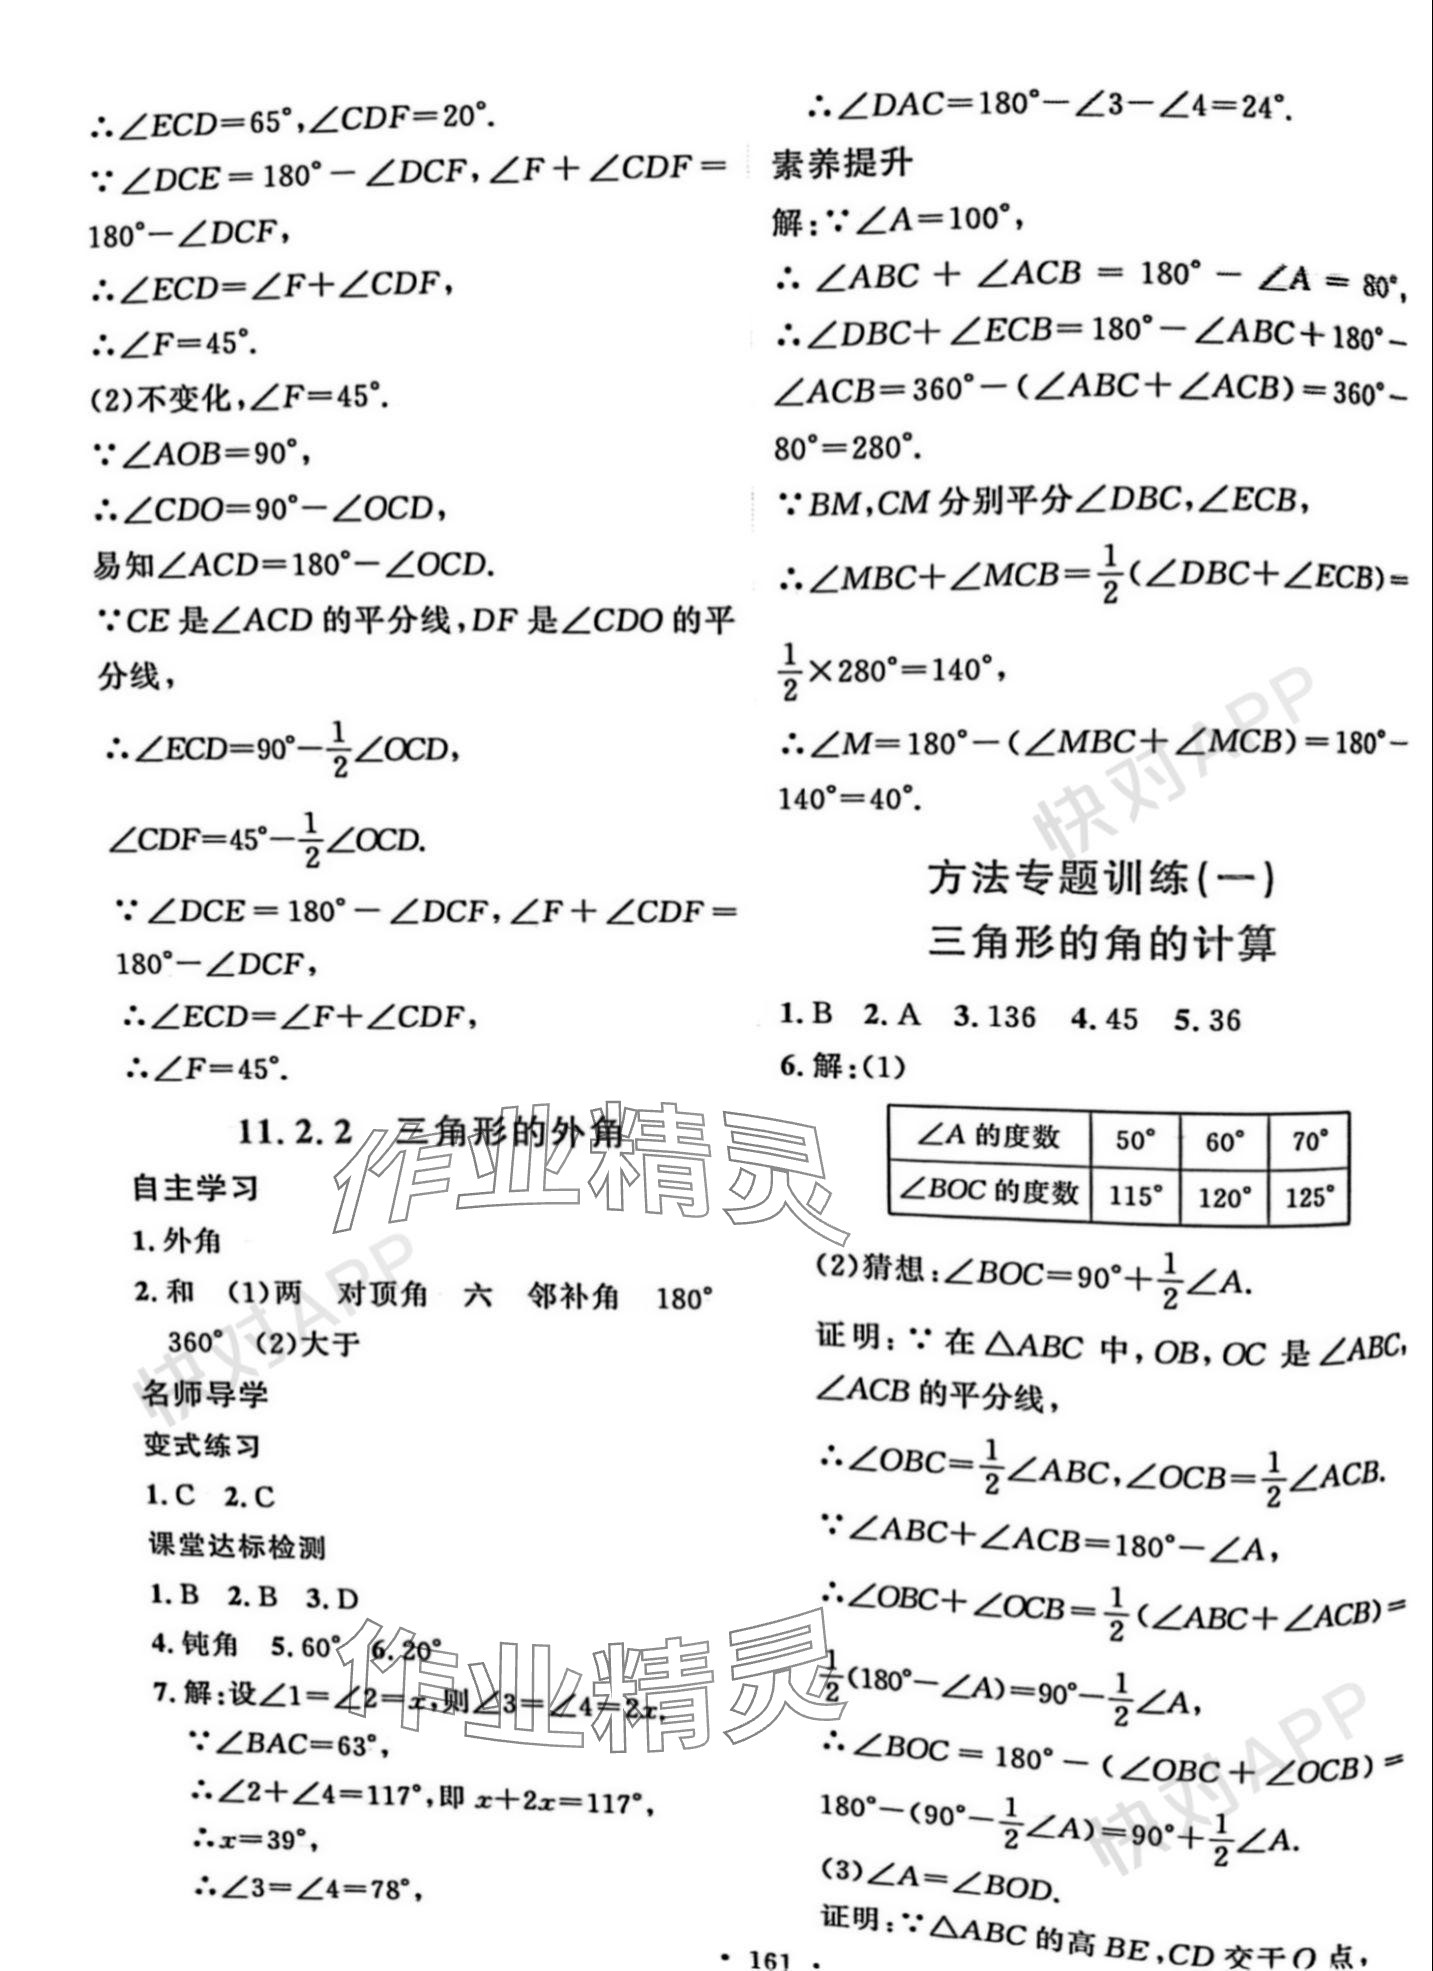 ∴∠ECD=65°,∠CDF=20°.
∵∠DCE=180°-∠DCF,∠F+∠CDF=
180°-∠DCF,
∴∠ECD=∠F+∠CDF,
∴∠F=45°.
(2)不变化,∠F=45°.
∵∠AOB=90°,
∴∠CDO=90°-∠OCD,
易知∠ACD=180°-∠OCD.
∵CE是∠ACD的平分线,DF是∠CDO的平
分线,
∴∠ECD=90°-1/2∠OCD,
∠CDF=45°-1/2∠OCD.
∵∠DCE=180°-∠DCF,∠F+∠CDF=
180°-∠DCF,
∴∠ECD=∠F+∠CDF,
∴∠F=45°.
11.2.2 三角形的外角
自主学习
1.外角
2.和 (1)两 对顶角 六 邻补角 180°
360° (2)大于
名师导学
变式练习
1.C 2.C
课堂达标检测
1.B 2.B 3.D
4.钝角 5.60° 6.20°
7.解:设∠1=∠2=x,则∠3=∠4=2x.
∵∠BAC=63°,
∴∠2+∠4=117°,即x+2x=117°,
∴x=39°,
∴∠3=∠4=78°,
∴∠DAC=180°-∠3-∠4=24°.
素养提升
解:∵∠A=100°,
∴∠ABC+∠ACB=180°-∠A=80°,
∴∠DBC+∠ECB=180°-∠ABC+180°-
∠ACB=360°-(∠ABC+∠ACB)=360°-
80°=280°.
∵BM,CM分别平分∠DBC,∠ECB,
∴∠MBC+∠MCB=1/2(∠DBC+∠ECB)=
1/2×280°=140°,
∴∠M=180°-(∠MBC+∠MCB)=180°-
140°=40°.
方法专题训练(一)
三角形的角的计算
1.B 2.A 3.136 4.45 5.36
6.解:(1)
∠A的度数 50° 60° 70°
∠BOC的度数 115° 120° 125°
(2)猜想:∠BOC=90°+1/2∠A.
证明:∵在△ABC中,OB,OC是∠ABC,
∠ACB的平分线,
∴∠OBC=1/2∠ABC,∠OCB=1/2∠ACB.
∵∠ABC+∠ACB=180°-∠A,
∴∠OBC+∠OCB=1/2(∠ABC+∠ACB)=
1/2(180°-∠A)=90°-1/2∠A,
∴∠BOC=180°-(∠OBC+∠OCB)=
180°-(90°-1/2∠A)=90°+1/2∠A.
(3)∠A=∠BOD.
证明:∵△ABC的高BE,CD交于O点,
• 161 •
作业精灵
作业精灵
快对APP
快对APP
快对APP